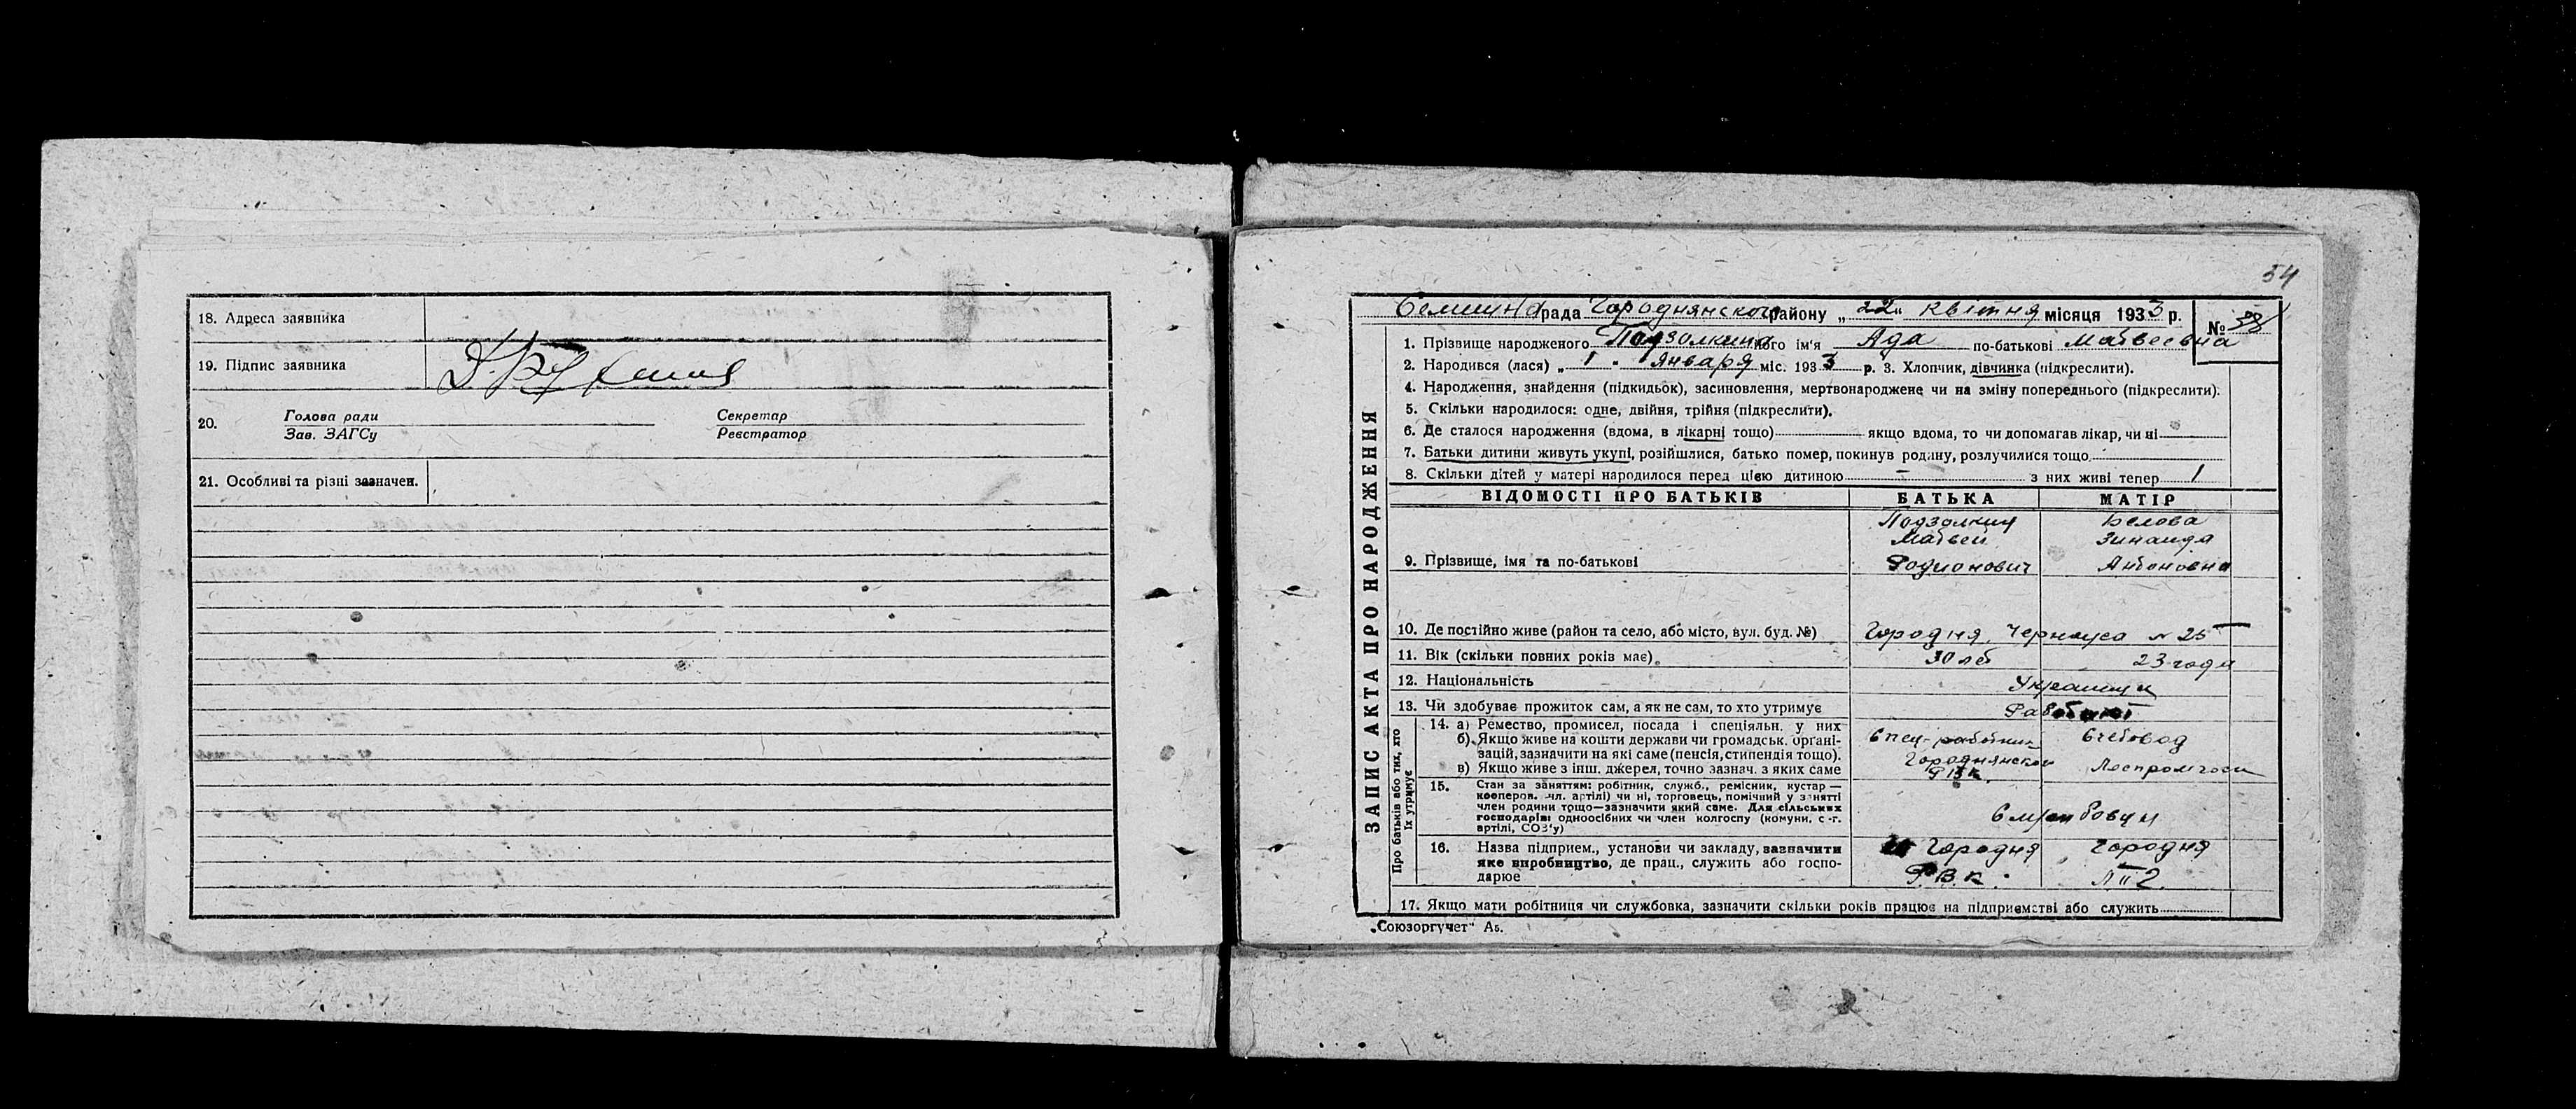 18. Адреса заявника
19. Підпис заявника
20. Голова ради Секретар
Зав. ЗАГСу Реєстратор
21. Особливі та різні зазначен.
54
рада Городнянского району „22“ квітня місяця 1933 р. №
1. Прізвище народженого Подзолкина його ім'я Ада по-батькові Матвеевна
2. Народився (лася) „1“ Января міс. 1933 р. 3. Хлопчик, дівчинка (підкреслити).
4. Народження, знайдення (підкидьок), засиновлення, мертвонароджене чи на зміну попереднього (підкреслити).
5. Скільки народилося: одне, двійня, трійня (підкреслити).
6. Де сталося народження (вдома, в лікарні тощо) якщо вдома, то чи допомагав лікар, чи ні
7. Батьки дитини живуть укупі, розійшлися, батько помер, покинув родину, розлучилися тощо
8. Скільки дітей у матері народилося перед цією дитиною – з них живі тепер 1
ЗАПИС АКТА ПРО НАРОДЖЕННЯ
ВІДОМОСТІ ПРО БАТЬКІВ БАТЬКА МАТІР
Подзолкин Белова
Матвей Зинаида
9. Прізвище, імя та по-батькові Родионович Антоновна
10. Де постійно живе (район та село, або місто, вул. буд. №) Городня, Черноуса № 25
11. Вік (скільки повних років має). 30 лет 23 года
12. Національність Украинцы
13. Чи здобуває прожиток сам, а як не сам, то хто утримує
Про батьків або тих, хто їх утримує
14. а) Ремество, промисел, посада і спеціяльн. у них
б) Якщо живе на кошти держави чи громадськ. органі- Спец-работник Счетовод
зацій, зазначити на які саме (пенсія, стипендія тощо). Городнянской
в) Якщо живе з інш. джерел, точно зазнач. з яких саме РВК. Леспромхоза
15. Стан за заняттям: робітник, служб., ремісник, кустар —
кооперов. чл. артілі) чи ні, торговець, помічний у занятті
член родини тощо—зазначити який саме. Для сільських
господарів: одноосібних чи член колгоспу (комуни, с.-г.
артілі, СОЗ'у)
16. Назва підприєм., установи чи закладу, зазначити Городня Городня
яке виробництво, де прац., служить або госпо-
дарює Р.В.К.
17. Якщо мати робітниця чи службовка, зазначити скільки років працює на підприємстві або служить
„Союзоргучет“ А5.